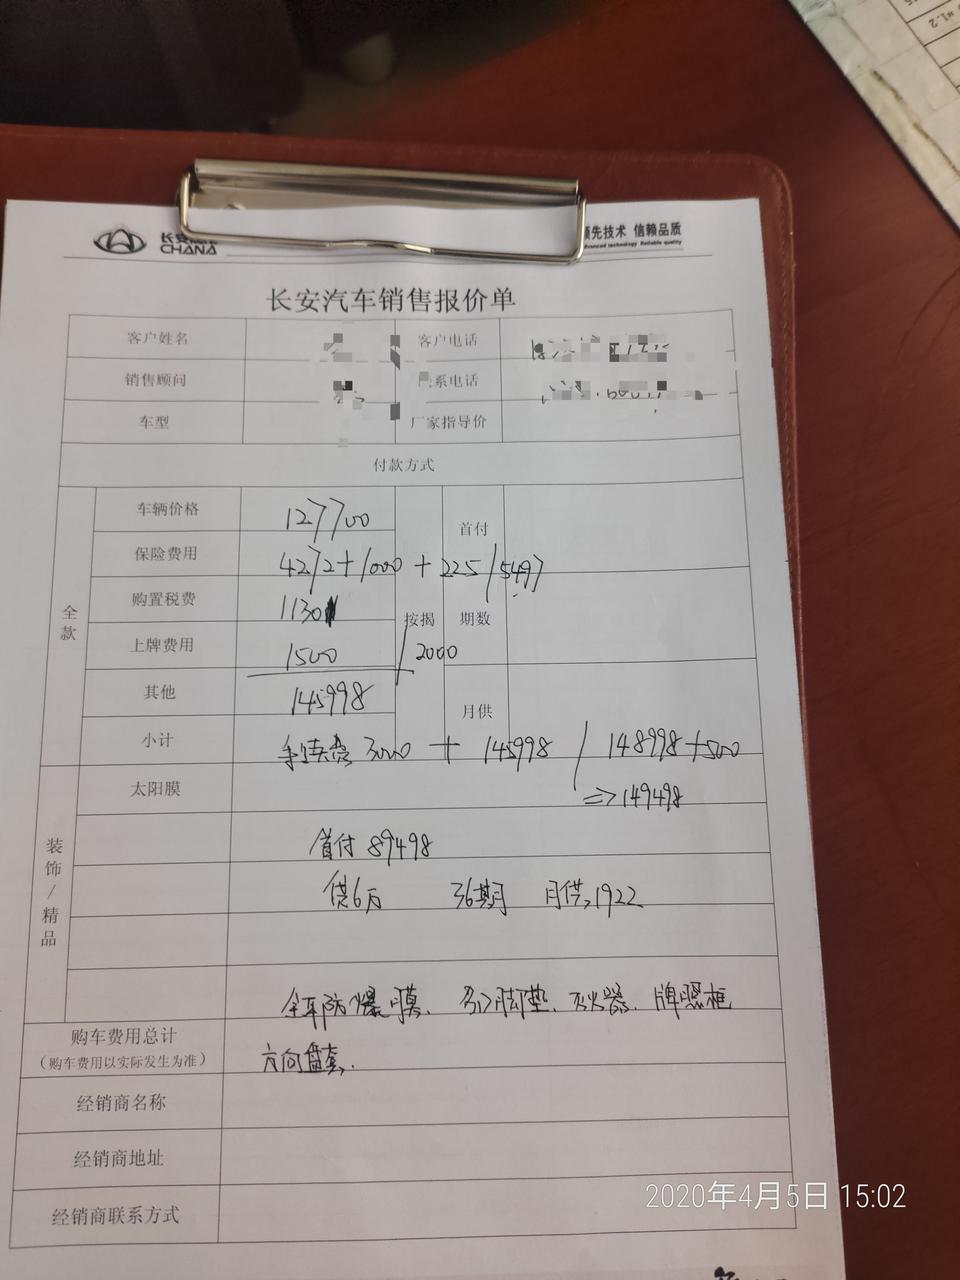 长安汽车
CHANA
领先技术 信赖品质
Advanced technology Reliable quality
长安汽车销售报价单
客户姓名 客户电话
销售顾问 联系电话
车型 厂家指导价
付款方式
全款
车辆价格 127700
首付
保险费用 4272+1000+225/5497
购置税费 11301
按揭 期数
上牌费用 1500/2000
其他 145998
月供
小计 手续费3000+145998/148998+500
太阳膜 =>149498
装饰/精品
首付89498
贷6万 36期 月供,1922
全车防爆膜、专门脚垫、灭火器、牌照框
购车费用总计
(购车费用以实际发生为准)
方向盘套、
经销商名称
经销商地址
经销商联系方式
2020年4月5日 15:02